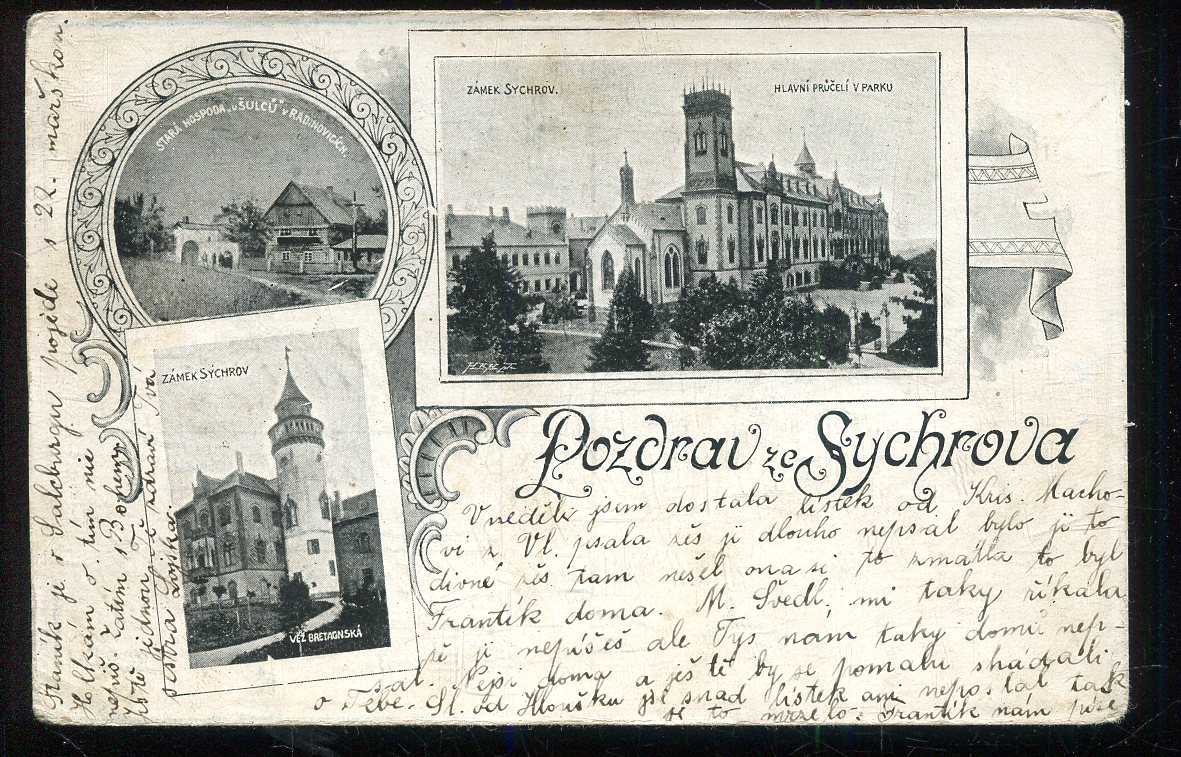 STARÁ HOSPODA „U ŠULCŮ" V RADIMOVICÍCH.
ZÁMEK SYCHROV.
HLAVNÍ PRŮČELÍ V PARKU
ZÁMEK SYCHROV
VĚŽ BRETAGNSKÁ
Pozdrav ze Sychrova
V neděli jsem dostala lístek od Kris. Macho-
vi z Vl. psala žės ji dlouho nepsal bylo ji to
divné žės tam nešel ona si to zmátla to byl
Frantík doma. M. Švedl. mi taky říkala
že ji nepíšeš ale Tys nám taky domů nep-
sal. Nejsi doma a ještě by se pomalu shádali
o Tebe. Sl. od Hloušku jsi snad lístek ani neposlal tak
se to mrzelo. Frantík nám píše
Staník je v Salcburgu pojede s 22. marškom.
H. říkám o tům nic
nepiš. Zatím s Bohem
Ještě jednou Tě zdraví Tvá
sestra